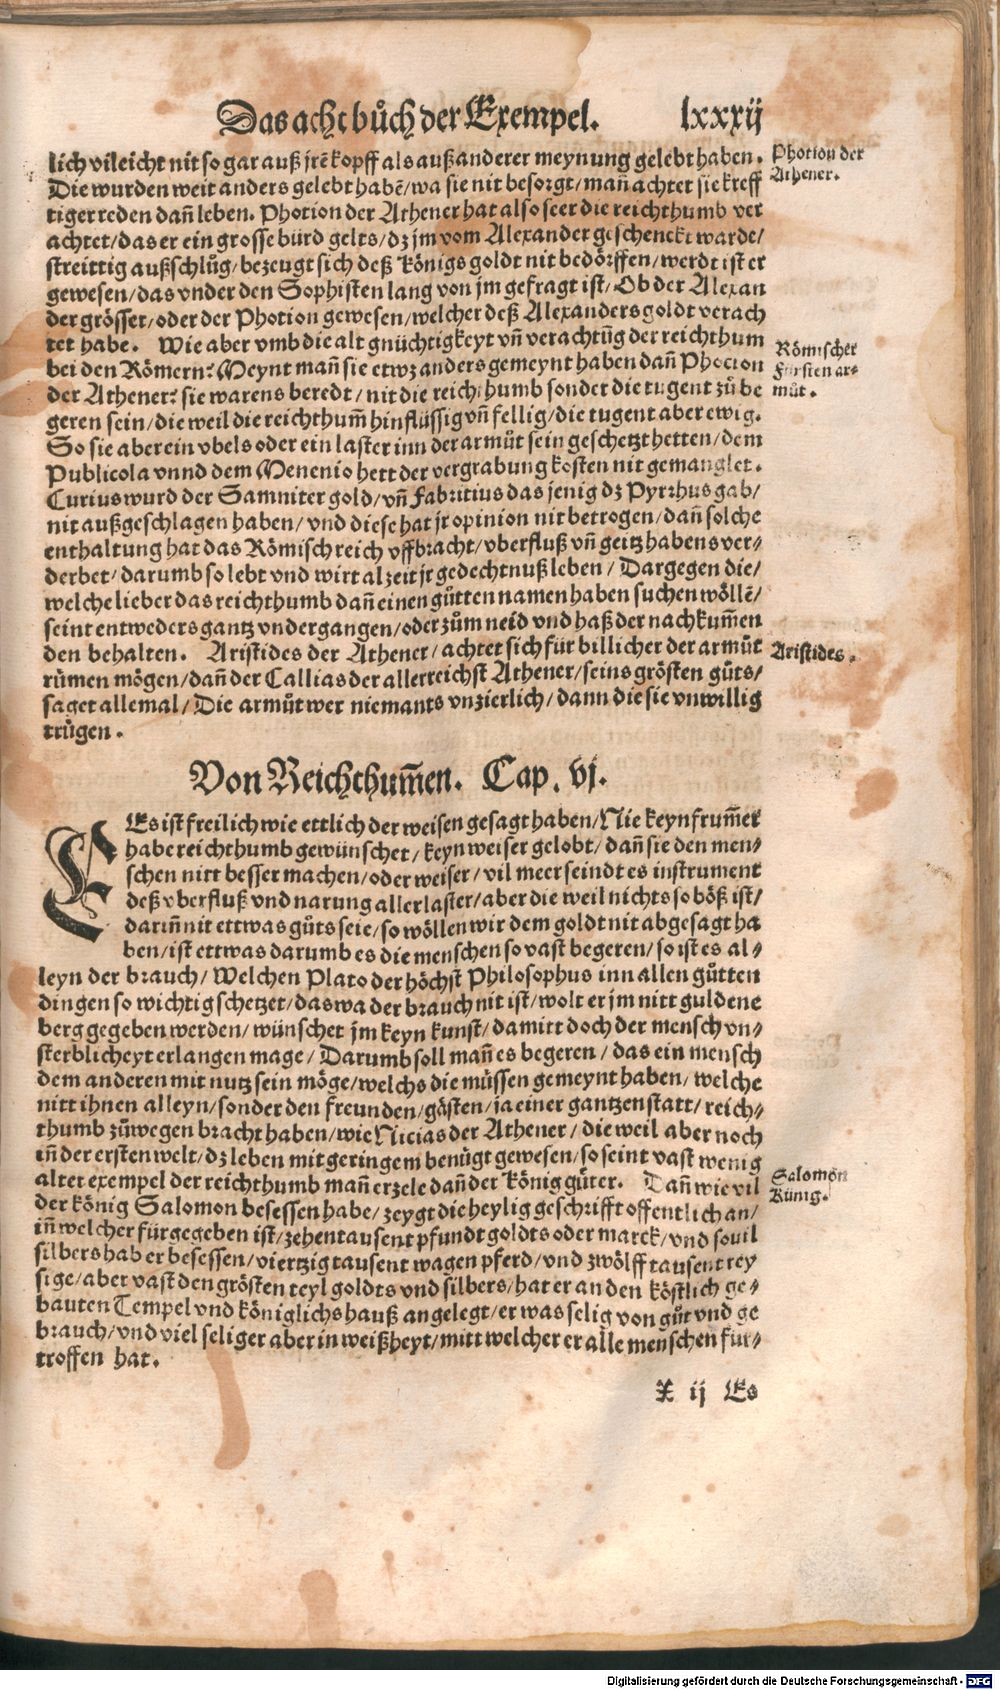 Das acht bůch der Exempel. lxxxij
lich vileicht nit so gar auß jrẽ kopff als auß anderer meynung gelebt haben.
Die wurden weit anders gelebt habẽ/wa sie nit besorgt/mañ achtet sie kreff
tiger reden dañ leben. Photion der Athener hat also seer die reichthumb ver
achtet/das er ein grosse bürd gelts/dz jm vom Alexander geschenckt warde/
streittig außschlůg/bezeugt sich deß Königs goldt nit bedörffen/werdt ist er
gewesen/das vnder den Sophisten lang von jm gefragt ist/Ob der Alexan
der grösser/oder der Photion gewesen/welcher deß Alexanders goldt verach
tet habe. Wie aber vmb die alt gnüchtigkeyt vñ verachtũg der reichthum
bei den Römern? Meynt mañ sie etwz anders gemeynt haben dañ Phocion
der Athener? sie warens beredt/nit die reichthumb sonder die tugent zů be
geren sein/die weil die reichthum̃ hinflüssig vñ fellig/die tugent aber ewig.
So sie aber ein vbels oder ein laster inn der armůt sein geschetzt hetten/dem
Publicola vnnd dem Menenio hett der vergrabung kosten nit gemanglet.
Curius wurd der Samniter gold/vñ Fabritius das jenig dz Pyrrhus gab/
nit außgeschlagen haben/vnd diese hat jr opinion nit betrogen/dañ solche
enthaltung hat das Römisch reich vffbracht/vberfluß vñ geitz habens ver-
derbet/darumb so lebt vnd wirt alzeit jr gedechtnuß leben/Dargegen die/
welche lieber das reichthumb dañ einen gůtten namen haben suchen wöllẽ/
seint entweders gantz vndergangen/oder zům neid vnd haß der nachkum̃en
den behalten. Aristides der Athener/achtet sich für billicher der armůt
rümen mögen/dañ der Callias der allerreichst Athener/seins grösten gůts/
saget allemal/Die armůt wer niemants vnzierlich/dann die sie vnwillig
trügen.
Photion der
Athener.
Römischer
Fürsten ar-
můt.
Aristides.
Von Reichthum̃en. Cap. vj.
Es ist freilich wie ettlich der weisen gesagt haben/Nie keyn frum̃er
habe reichthumb gewünschet/keyn weiser gelobt/dañ sie den men-
schen nitt besser machen/oder weiser/vil meer seindt es instrument
deß vberfluß vnd narung aller laster/aber die weil nichts so böß ist/
dariñ nit ettwas gůts seie/so wöllen wir dem goldt nit abgesagt ha
ben/ist ettwas darumb es die menschen so vast begeren/so ist es al-
leyn der brauch/Welchen Plato der höchst Philosophus inn allen gůtten
dingen so wichtig schetzet/das wa der brauch nit ist/wolt er jm nitt guldene
berg gegeben werden/wünschet jm keyn kunst/damitt doch der mensch vn-
sterblicheyt erlangen mage/Darumb soll mañ es begeren/das ein mensch
dem anderen mit nutz sein möge/welchs die müssen gemeynt haben/welche
nitt ihnen alleyn/sonder den freunden/gästen/ja einer gantzen statt/reich-
thumb zůwegen bracht haben/wie Nicias der Athener/die weil aber noch
iñ der ersten welt/dz leben mit geringem benügt gewesen/so seint vast wenig
alter exempel der reichthumb mañ erzele dañ der König güter. Dañ wie vil
der könig Salomon besessen habe/zeygt die heylig geschrifft offentlich an/
iñ welcher fürgegeben ist/zehentausent pfundt goldts oder marck/vnd souil
silbers hab er besessen/viertzig tausent wagen pferd/vnd zwölff tausent rey
sige/aber vast den grösten teyl goldts vnd silbers/hat er an den köstlich ge-
bauten Tempel vnd königlichs hauß angelegt/er was selig von gůt vnd ge
brauch/vnd viel seliger aber in weißheyt/mitt welcher er alle menschen für-
troffen hat.
Salomon
Künig.
X ij Es
Digitalisierung gefördert durch die Deutsche Forschungsgemeinschaft - DFG